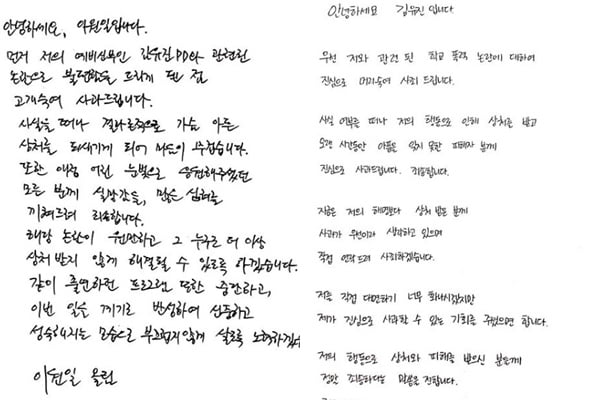 안녕하세요, 이원일입니다.
먼저 저의 예비신부인 김유진PD와 관련된
논란으로 불편함을 드리게 된 점
고개숙여 사과드립니다.
사실을 떠나 결과론적으로 가슴 아픈
상처를 되새기게 되어 마음이 무겁습니다.
또한 애정 어린 눈빛으로 응원해주셨던
모든 분께 실망감을, 많은 심려를
끼쳐드려 죄송합니다.
해당 논란이 원만하고 그 누구도 더 이상
상처 받지 않게 해결될 수 있도록 하겠습니다.
같이 출연하던 프로그램 또한 중단하고,
이번 일을 계기로 반성하며 신중하고
성숙해지는 모습으로 부끄럽지않게 살도록 노력하겠
이원일 올림
안녕하세요 김유진 입니다
우선 저와 관련 된 학교 폭력 논란에 대하여
진심으로 머리숙여 사죄 드립니다.
사실 여부를 떠나 저의 행동으로 인해 상처를 받고
오랜 시간동안 아픔을 잊지 못한 피해자 분께
진심으로 사과드립니다. 죄송합니다.
지금은 저의 해명보다 상처 받은 분께
사과가 우선이라 생각하고 있으며
직접 연락드려 사죄하겠습니다.
저를 직접 대면하기 너무 화나시겠지만
제가 진심으로 사과할 수 있는 기회를 주셨으면 합니다.
저의 행동으로 상처와 피해를 받으신 분들께
정말 죄송하다는 말씀을 전합니다.